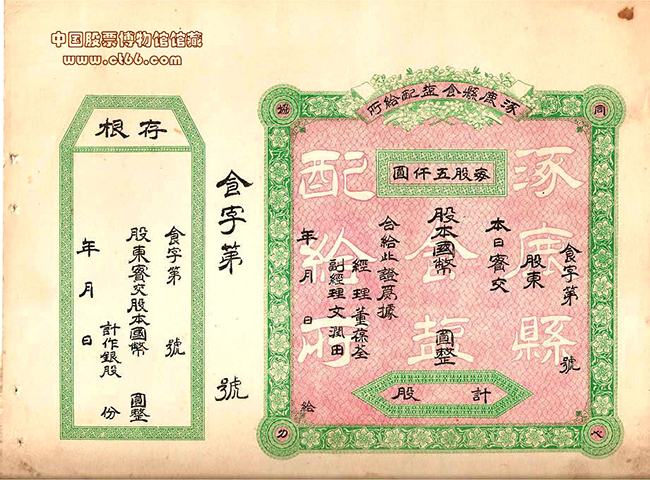 中国股票博物馆馆藏
www.ct66.com
涿鹿縣食盐配給所
同心協力
涿鹿縣
食盐
配給所
每股五仟圓
食字第 號
股東
本日實交
股本國幣 圓整
合給此證爲據
經理董葆荃
副經理文潤田
年 月 日 給
計 股
食字第 號
存根
食字第 號
股東實交股本國幣 圓整
計作銀股 份
年 月 日